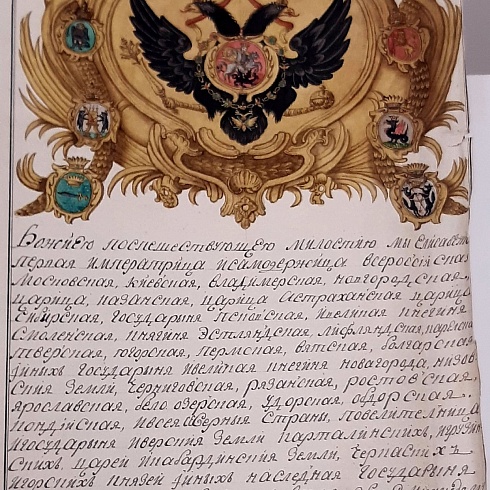 Божиею поспешествующею милостию мы Елисавет
первая императрица исамодержица всеросiиская
Московская, киевская, владимерская, новгородская,
царица, казанская, царица Астраханская царица
Сибирская, государыня псковская, ивеликая княгиня
Смоленская, княгиня Эстляндская, Лифляндская, корелская
тверская, югорская, пермская, вятская, болгарская
iиных государыня ивеликая княгиня новагорода, низов
ския земли, черниговская, рязанская, ростовская,
ярославская, бело озерская, удорская, обдорская,
кондiиская, ивсея северныя страны, повелителница
игосударыня иверския земли карталинскихъ, игрузин
скихъ, царей икабардинския земли, черкаскихъ
игорскихъ князей iиных наследная государыня